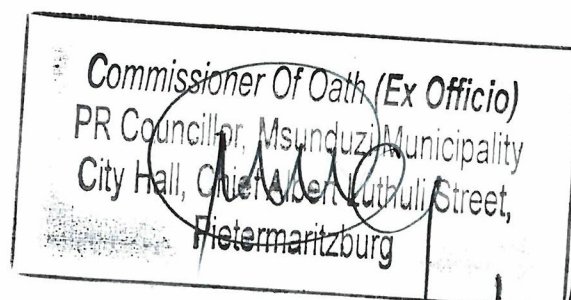 Commissioner Of Oath (Ex Officio)
PR Councillor, Msunduzi Municipality
City Hall, Chief Albert Luthuli Street,
Pietermaritzburg